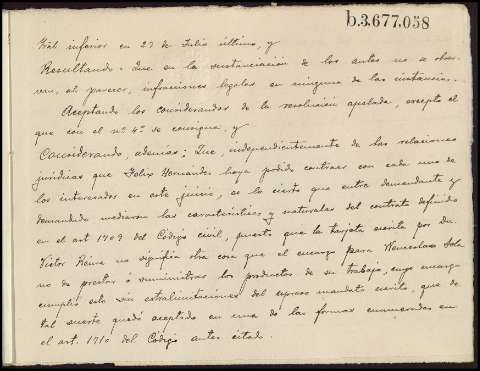 b.3.677.058
inferior en 27 de Julio último, y
Resultando: Que en la sustanciación de los autos no se obser-
van, al parecer, infracciones legales en ninguna de las instancias.
Aceptando los considerandos de la resolución apelada, excepto el
que con el nº 4º se consigna, y
Considerando, además: Que, independientemente de las relaciones
jurídicas que Félix Hernandez haya podido contraer con cada uno de
los interesados en este juicio, es lo cierto que entre demandante y
demandado mediaron las características y naturales del contrato definido
en el art 1709 del Código civil, puesto que la tarjeta escrita por Dn.
Victor Reina no significa otra cosa que el encargo para Wenceslao Sola
no de prestar ó suministrar los productos de su trabajo, cuyo encargo
cumplió este sin extralimitaciones del expreso mandato escrito, que de
tal suerte quedó aceptado en una de las formas enumeradas en
el art. 1710 del Código antes citado.